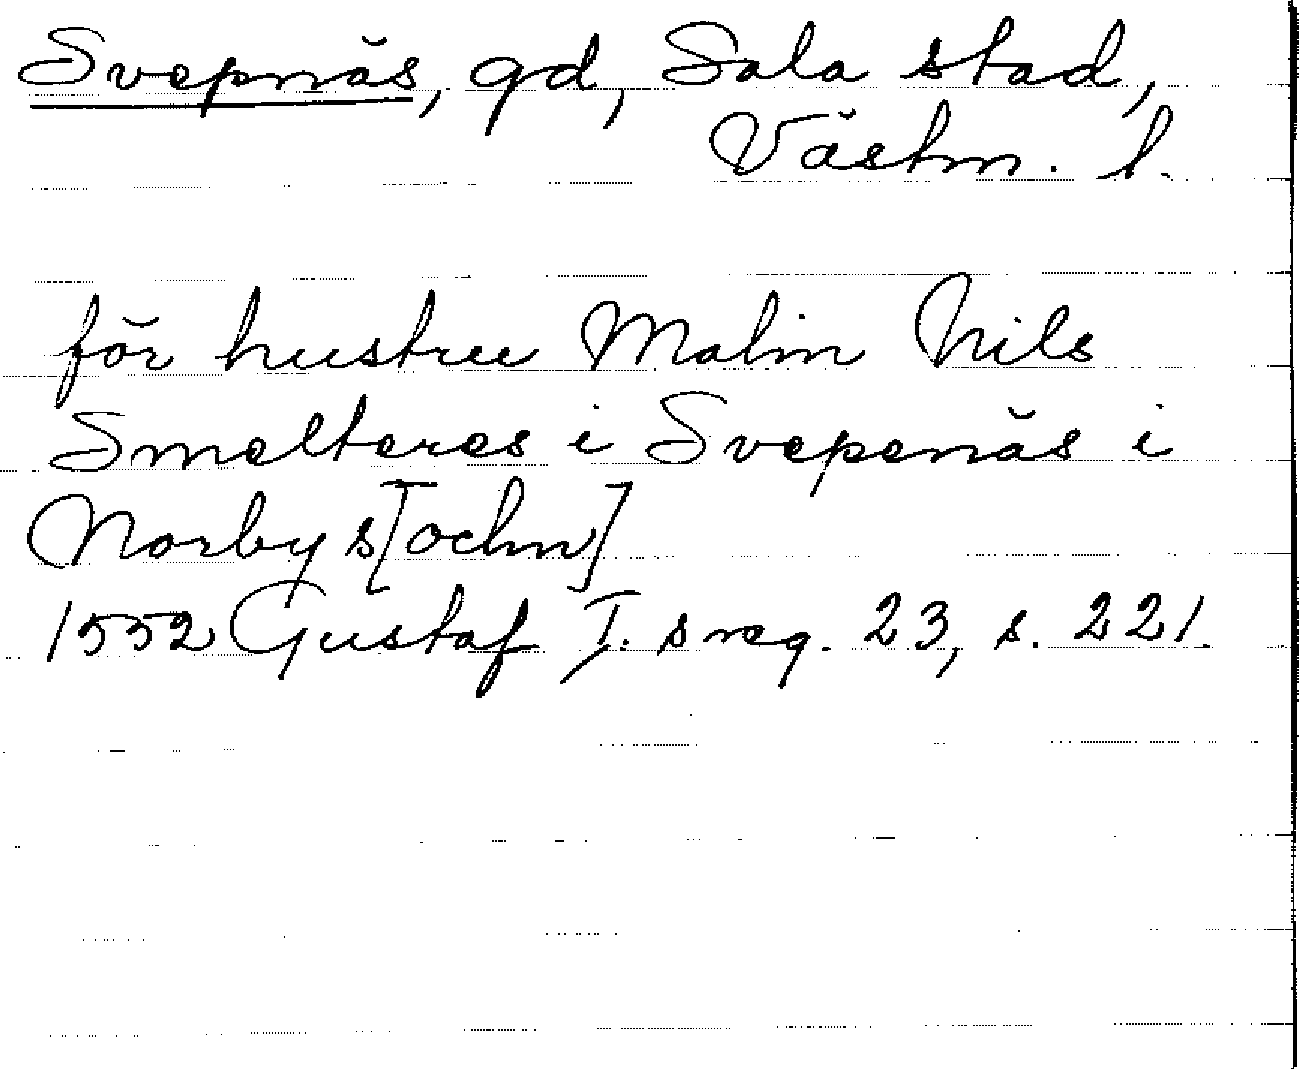 Svepnäs, gd, Sala stad,
Västm. l.
för hustru Malin Nils
Smelteres i Svepenäs i
Norby s[ochn]
1552 Gustaf I:s reg. 23, s. 221.